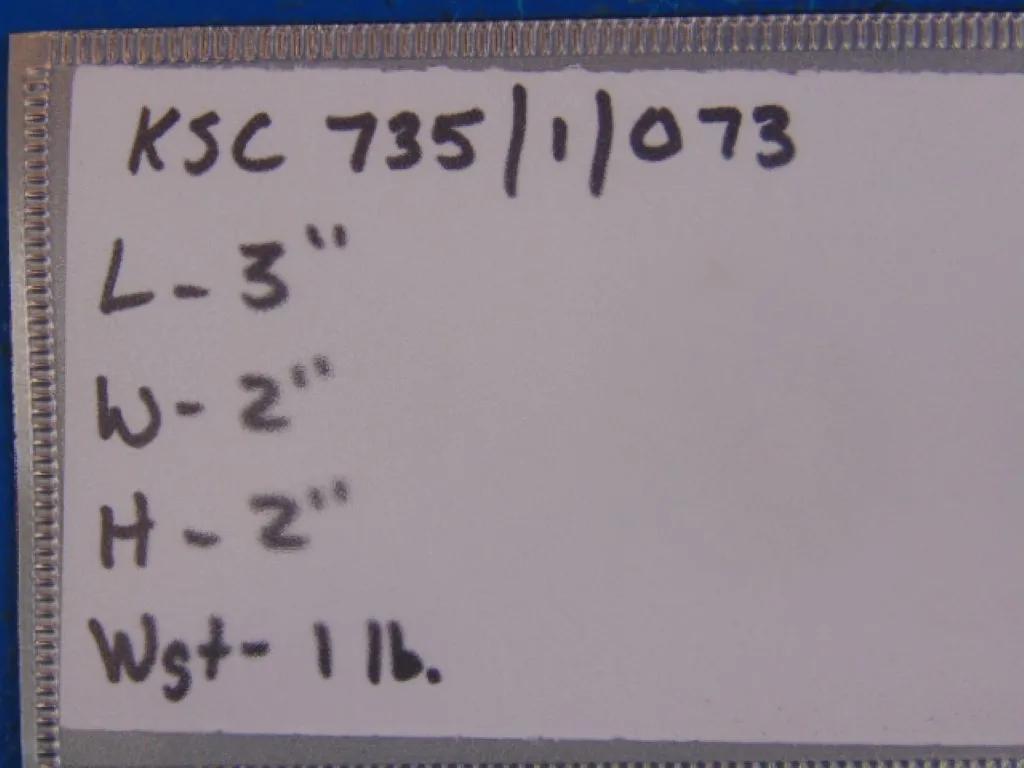 KSC 735/1/073
L- 3"
W- 2"
H- 2"
Wgt- 1 lb.